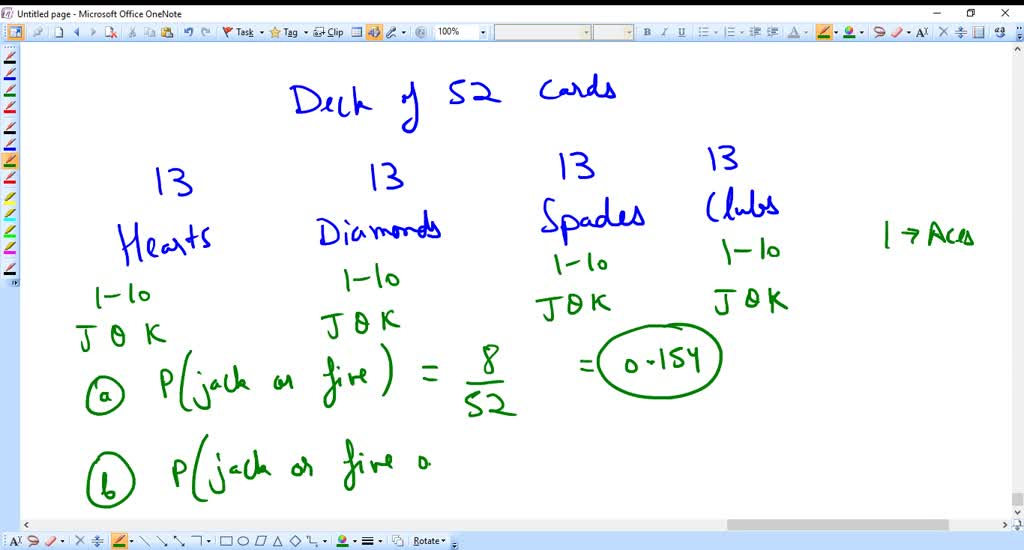 Untitled page - Microsoft Office OneNote
Task Tag Clip 100% B I U A
Deck of 52 cards
13 13 13 13
Hearts Diamonds Spades Clubs
1-10 1-10 1-10 1-10 1 → Aces
J Q K J Q K J Q K J Q K
(a) P(jack or five) = 8/52 = 0.154
(b) P(jack or five o
Rotate